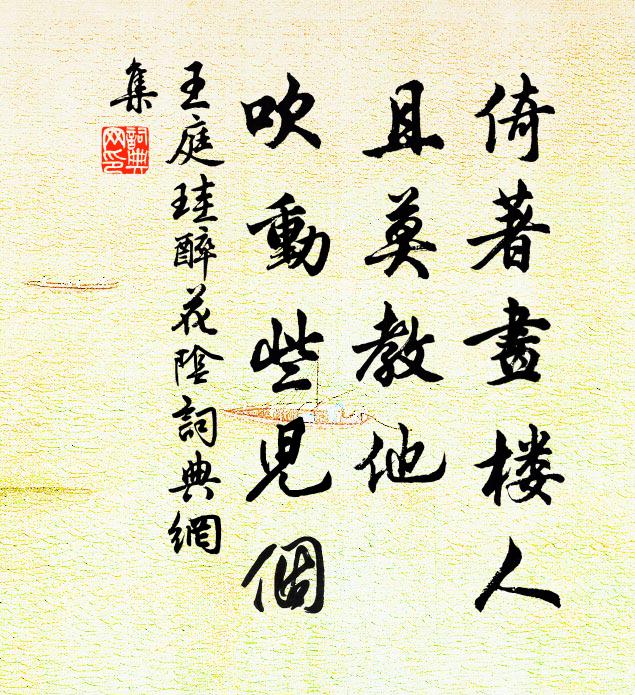 倚著畫楼人
且莫教他
吹動些児個
王庭珪醉花陰詞典網
集
詞典網印